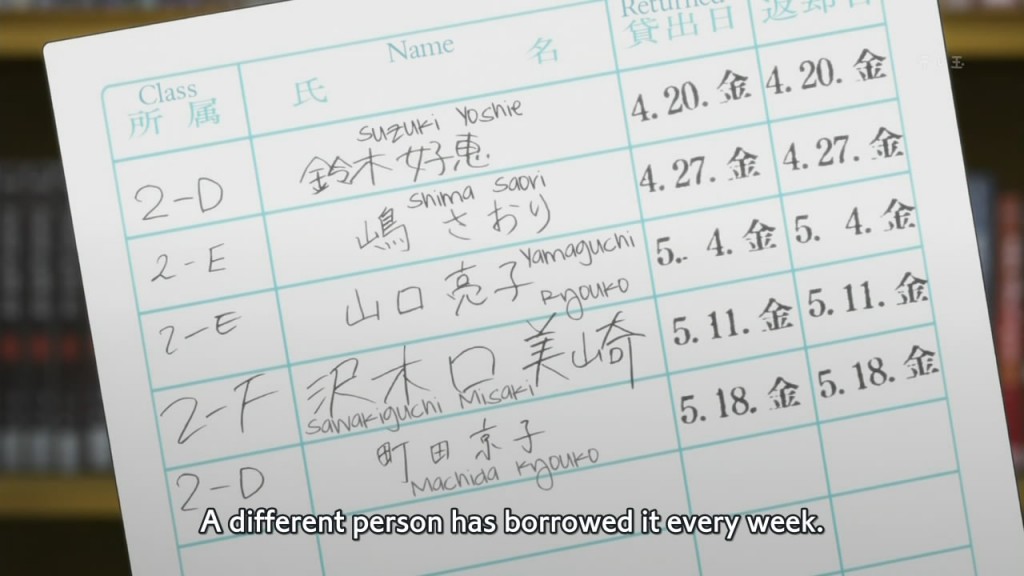 Class Name Returned
所属 氏 名 貸出日 返却日
Suzuki Yoshie
2-D 鈴木好恵 4.20.金 4.20.金
Shima Saori
2-E 嶋さおり 4.27.金 4.27.金
2-E 山口亮子 Yamaguchi Ryouko 5. 4.金 5. 4.金
2-F 沢木口美崎 5.11.金 5.11.金
Sawakiguchi Misaki
2-D 町田京子 5.18.金 5.18.金
Machida Kyouko
A different person has borrowed it every week.